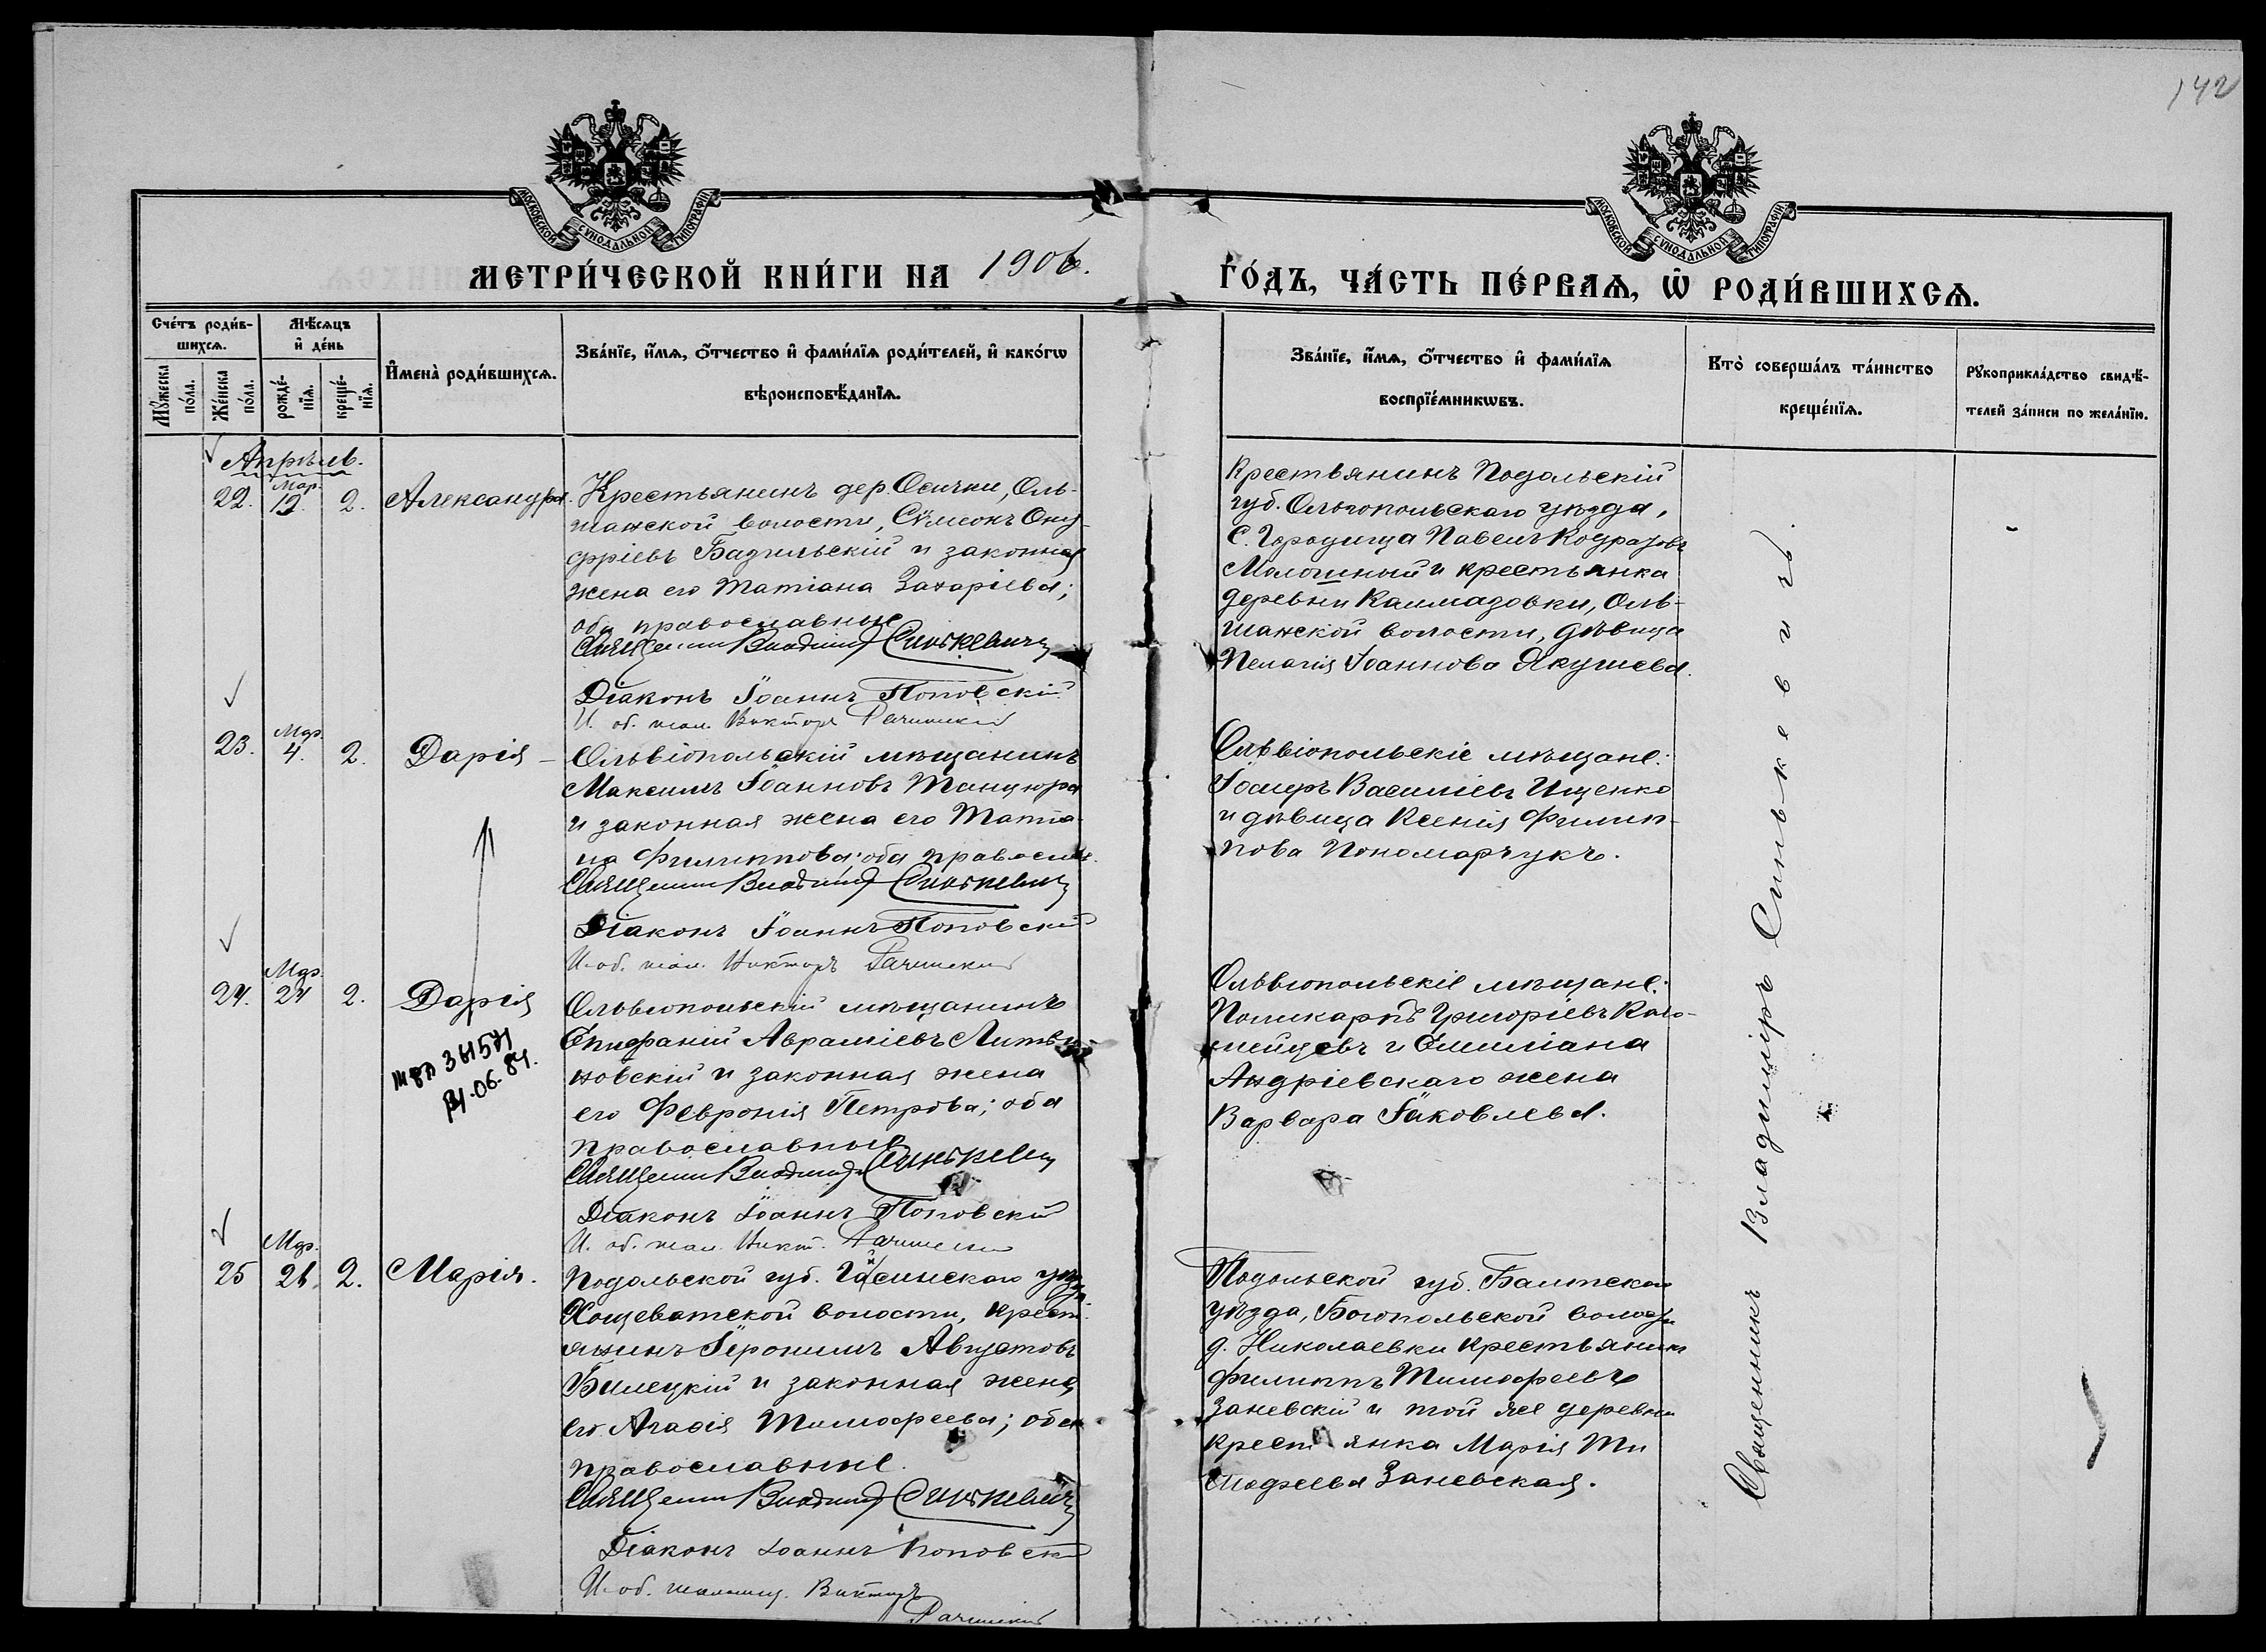 142
МОСКОВСКОЙ СУНОДАЛЬНОЙ ТИПОГРАФІИ
МОСКОВСКОЙ СУНОДАЛЬНОЙ ТИПОГРАФІИ
МЕТРИ́ЧЕСКОЙ КНИ́ГИ НА 1906.
ГО́ДЪ, ЧА́СТЬ ПЕ́РВАѦ, Ѡ҆ РОДИ́ВШИХСѦ.
Сче́тъ роди́в-
шихсѧ.
Мꙋ́жеска по́ла.
Же́нска по́ла.
Мѣ́сѧцъ
и҆ де́нь
рожде́-
нїѧ.
креще́-
нїѧ.
И҆мена̀ роди́вшихсѧ.
Зва́нїе, и҆́мѧ, ѻ҆́тчество и҆ фами́лїѧ роди́телей, и҆ како́гѡ
вѣроисповѣ́данїѧ.
Зва́нїе, и҆́мѧ, ѻ҆́тчество и҆ фами́лїѧ
воспрїе́мникѡвъ.
Кто̀ соверша́лъ та́инство
креще́нїѧ.
Рꙋкоприкла́дство свидѣ́-
телей за́писи по жела́нїю.
Апрѣль.
22. Мар. 12. 2. Александра.
Крестьянинъ дер. Осички, Оль-
шанской волости, Сѵмеонъ Ону-
фріевъ Бадзильскій и законная
жена его Татіана Захаріева;
оба православные
Священникъ Владиміръ Синькевичъ
Діаконъ Іоаннъ Поповскій
И. об. псал. Викторъ Рачинскій
Крестьянинъ Подольскій
губ. Ольгопольскаго уѣзда,
с. Городища Павелъ Кодратовъ
Молошный и крестьянка
деревни Калмазовки, Оль-
шанской волости, дѣвица
Пелагія Іоаннова Якушева.
23. Мар. 4. 2. Дарія –
Ольвіопольскій мѣщанинъ
Максимъ Іоанновъ Танцюра
и законная жена его Татіа-
на Филиппова; оба православ.
Священникъ Владиміръ Синькевичъ
Діаконъ Іоаннъ Поповскій
И. об. псал. Викторъ Рачинскій
Ольвіопольскіе мѣщане:
Іосифъ Василіевъ Ищенко
и дѣвица Ксенія Филип-
пова Пономарчукъ.
24. Мар. 24 2. Дарія
Ольвіопольскій мѣщанинъ
Епифаній Авраміевъ Литви-
новскій и законная жена
его Февронія Петрова; оба
православные
Священникъ Владиміръ Синькевичъ
Діаконъ Іоаннъ Поповскій
И. об. псал. Викт. Рачинскій
Ольвіопольскіе мѣщане:
Поликарпъ Григоріевъ Коло-
мейцевъ и Емиліана
Андріевскаго жена
Варвара Іаковлева.
25 Мар. 26. 2. Марія.
Подольской губ. Гайсинскаго уѣзда
Хощеватской волости, крест-
янинъ Іеронимъ Августовъ
Билецкій и законная жена
его Агаѳія Тимофеева; оба
православные.
Священникъ Владиміръ Синькевичъ
Діаконъ Іоаннъ Поповскій
И. об. псаломщ. Викторъ
Рачинскій
Подольской губ. Балтскаго
уѣзда, Богопольской волости
д. Николаевки крестьянинъ
Филиппъ Тимофеевъ
Заневскій и той же деревни
крестьянка Марія Ти
мофеева Заневская.
Священникъ Владиміръ Синькевичъ.